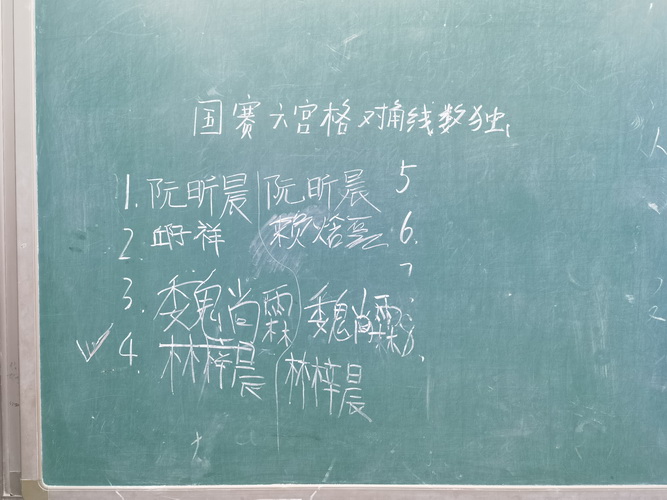 国赛六宫格对角线数独
1. 阮昕晨 阮昕晨 5
2. 邱子祥 赖焓 6.
7
3. 魏尚霖 魏尚霖 8.
4. 林梓晨 林梓晨